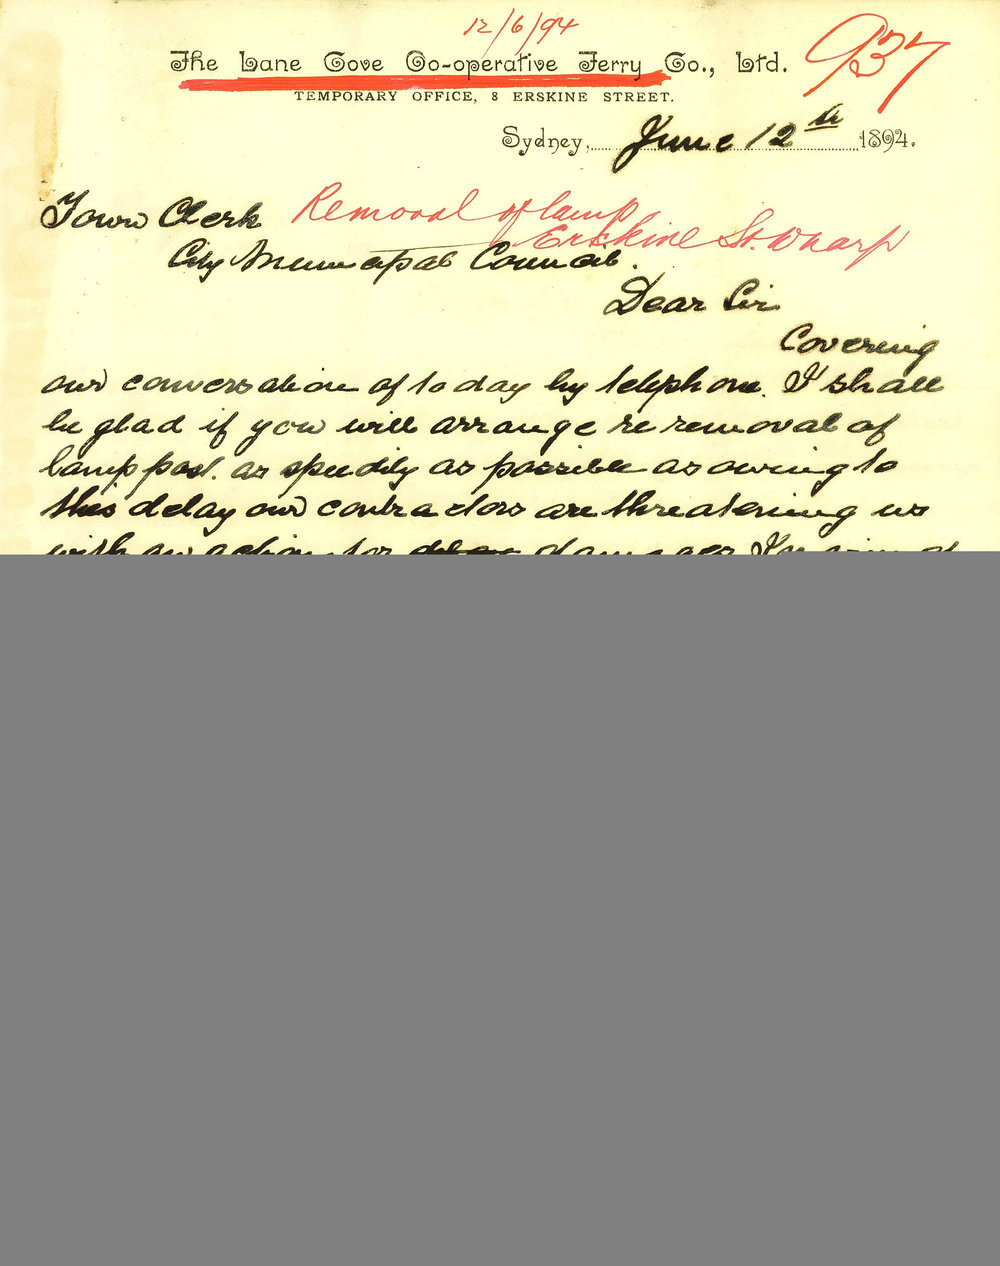 12/6/94
937
The Lane Cove Co-operative Ferry Co., Ltd.
TEMPORARY OFFICE, 8 ERSKINE STREET.
Sydney, June 12th 1894.
Town Clerk
Removal of lamp
Erskine St. Wharf
City Municipal Council.
Dear Sir
Covering
our conversation of to day by telephone. I shall
be glad if you will arrange re removal of
lamp post. as speedily as possible as owing to
this delay our contractors are threatening us
with an action for damages